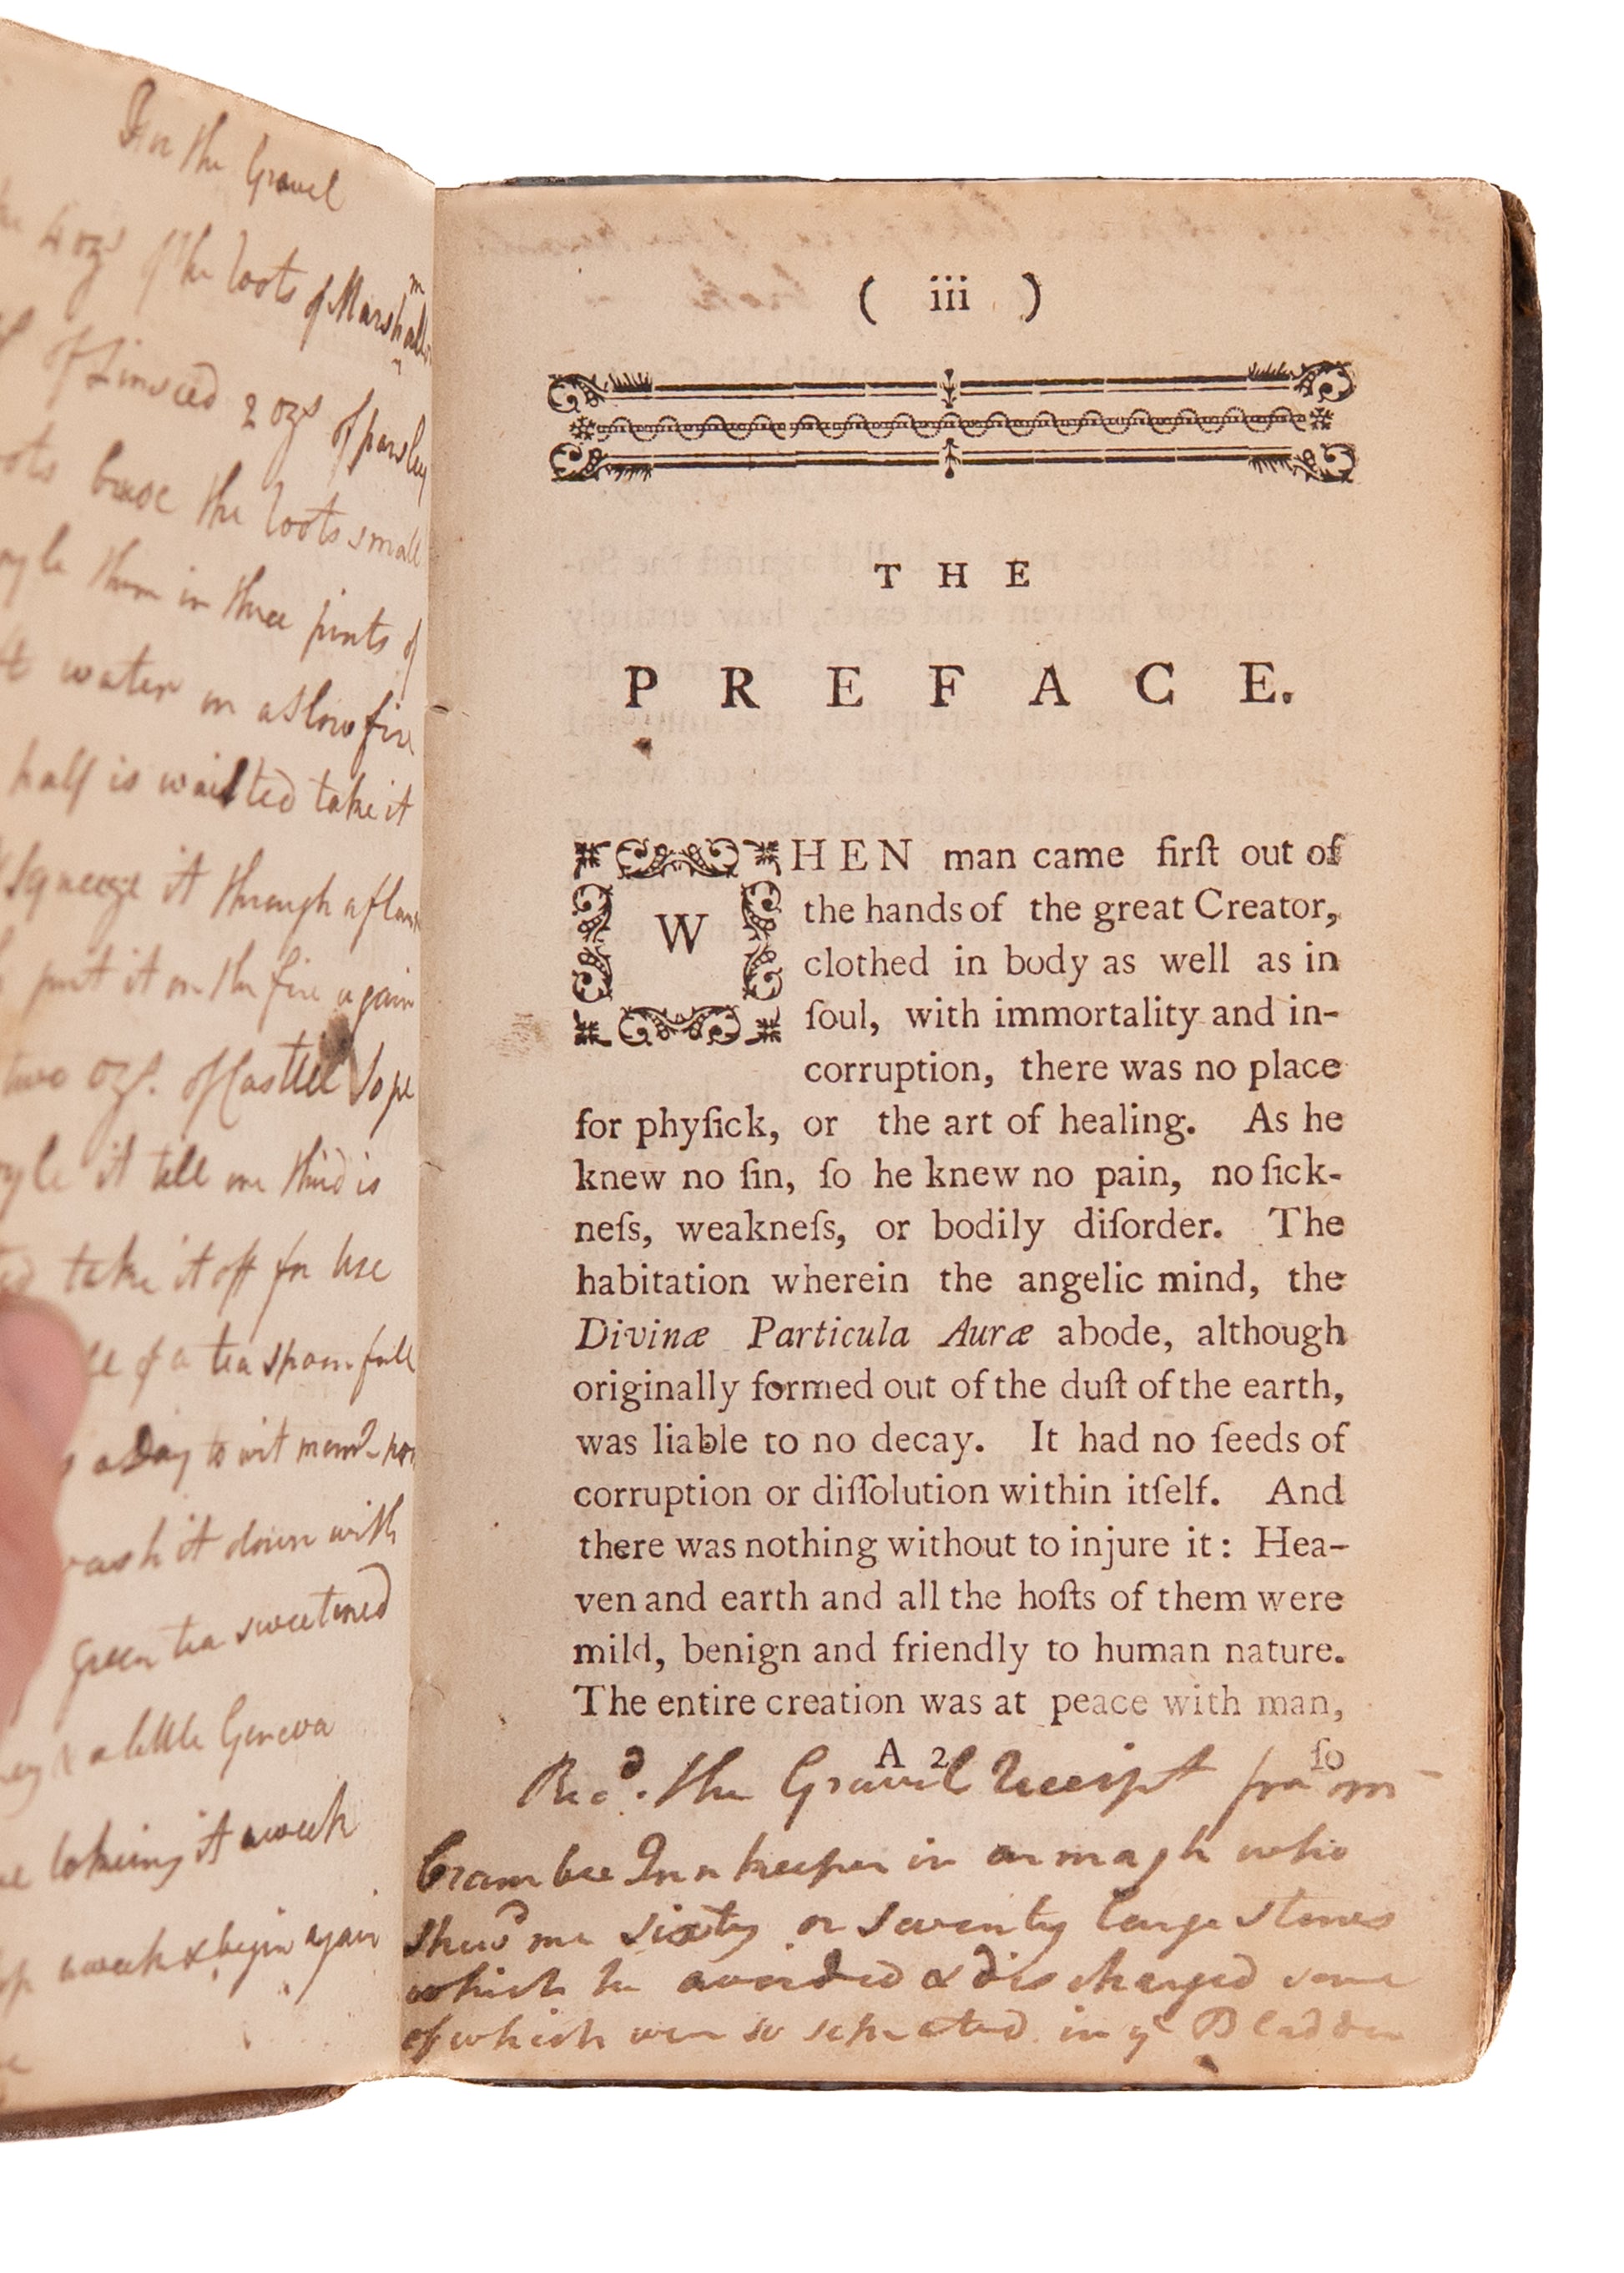 For the Gravel
4 ozs of the roots of Marshmall
of Linseed 2 ozs of parsley
bruse the roots small
them in three pints of
water on a slow fire
half is waisted take it
squeege it through a flan
put it on the fire again
two ozs. of Casttel Sope
it till one third is
take it off for use
of a tea spoon full
a Day to wit mornd
wash it down with
Green tea sweetened
& a little Geneva
takeing it a week
a week & begin again
( iii )
THE
PREFACE.
WHEN man came firſt out of
the hands of the great Creator,
clothed in body as well as in
ſoul, with immortality and in-
corruption, there was no place
for phyſick, or the art of healing. As he
knew no ſin, ſo he knew no pain, no ſick-
neſs, weakneſs, or bodily diſorder. The
habitation wherein the angelic mind, the
Divinæ Particula Auræ abode, although
originally formed out of the duſt of the earth,
was liable to no decay. It had no ſeeds of
corruption or diſſolution within itſelf. And
there was nothing without to injure it: Hea-
ven and earth and all the hoſts of them were
mild, benign and friendly to human nature.
The entire creation was at peace with man,
A 2 ſo
Recd. the Gravel Receipt from
Crambee Innkeeper in armagh who
shewd me sixty or seventy large stones
which he avoided & discharged some
of which were so in ye Bladder